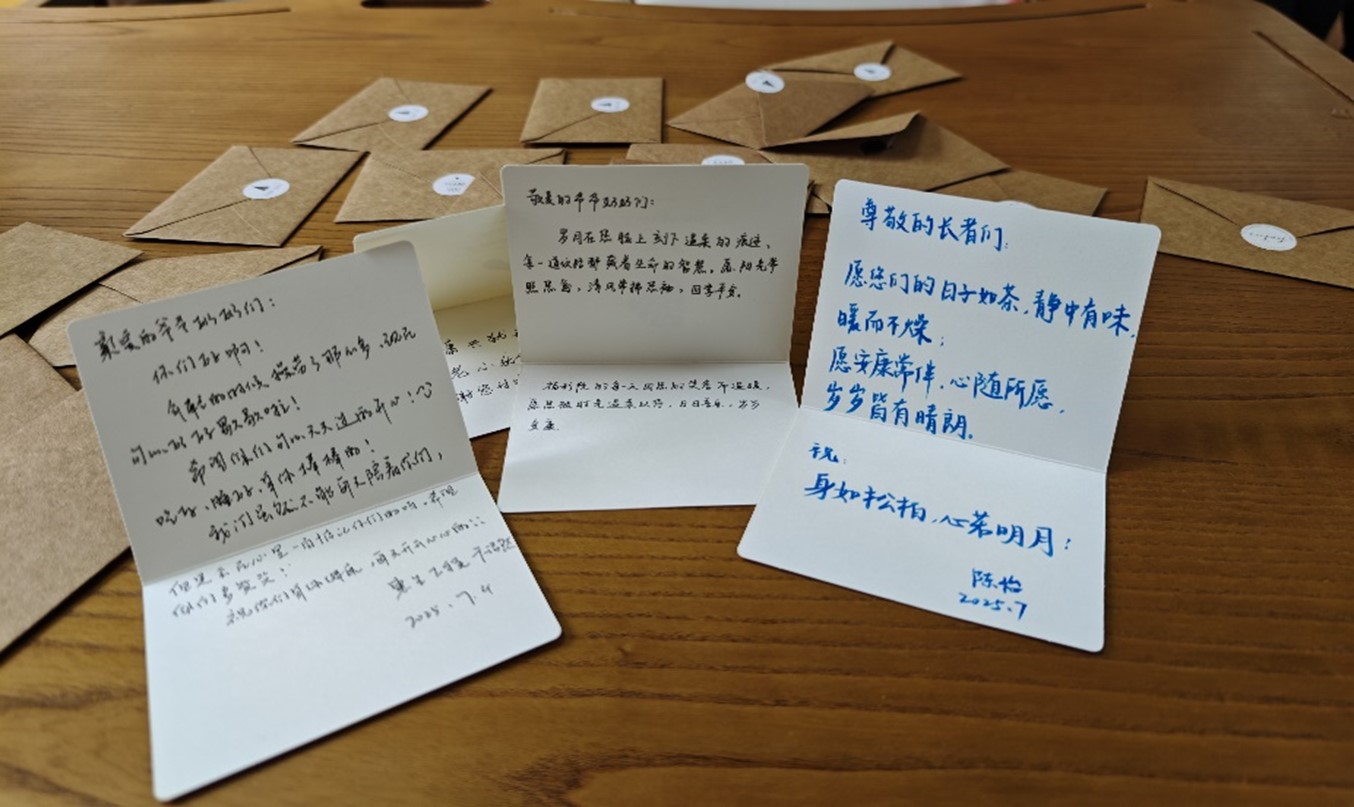 亲爱的爷爷奶奶们：
你们好啊！
年轻的时候操劳了那么多，现在
可以好好歇歇啦！
希望你们可以天天过的开心！
吃好、睡好、身体棒棒的！
我们虽然不能每天陪着你们，
但是会在心里一直惦记你们的哟，希望
你们多笑笑！
祝你们身体健康，每天开开心心的
2025.7.4
敬爱的爷爷奶奶们：
岁月在您脸上刻下温柔的痕迹，
每一道皱纹都藏着生命的智慧。愿阳光常
照您窗，清风常拂您袖，四季平安。
福利院的每一天因您的笑容而温暖，
愿您被时光温柔以待，日日喜乐，岁岁
安康。
尊敬的长者们：
愿您们的日子如茶，静中有味，
暖而不燥；
愿安康常伴，心随所愿，
岁岁皆有晴朗。
祝：
身如松柏，心若明月！
陈怡
2025.7